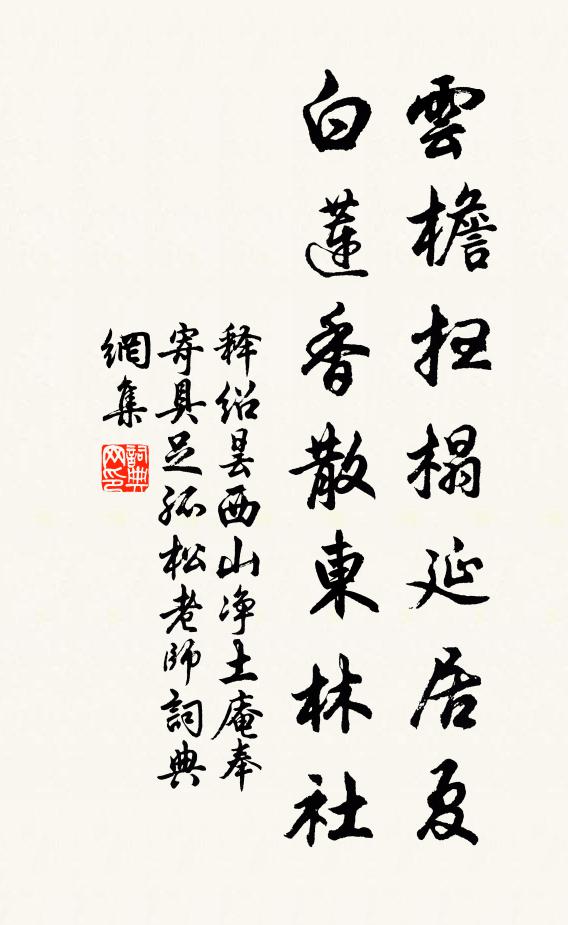 雲檐扫榻延居夏
白蓮香散東林社
释绍昙西山净土庵奉
寄具足孤松老師詞典
網集
詞典网印